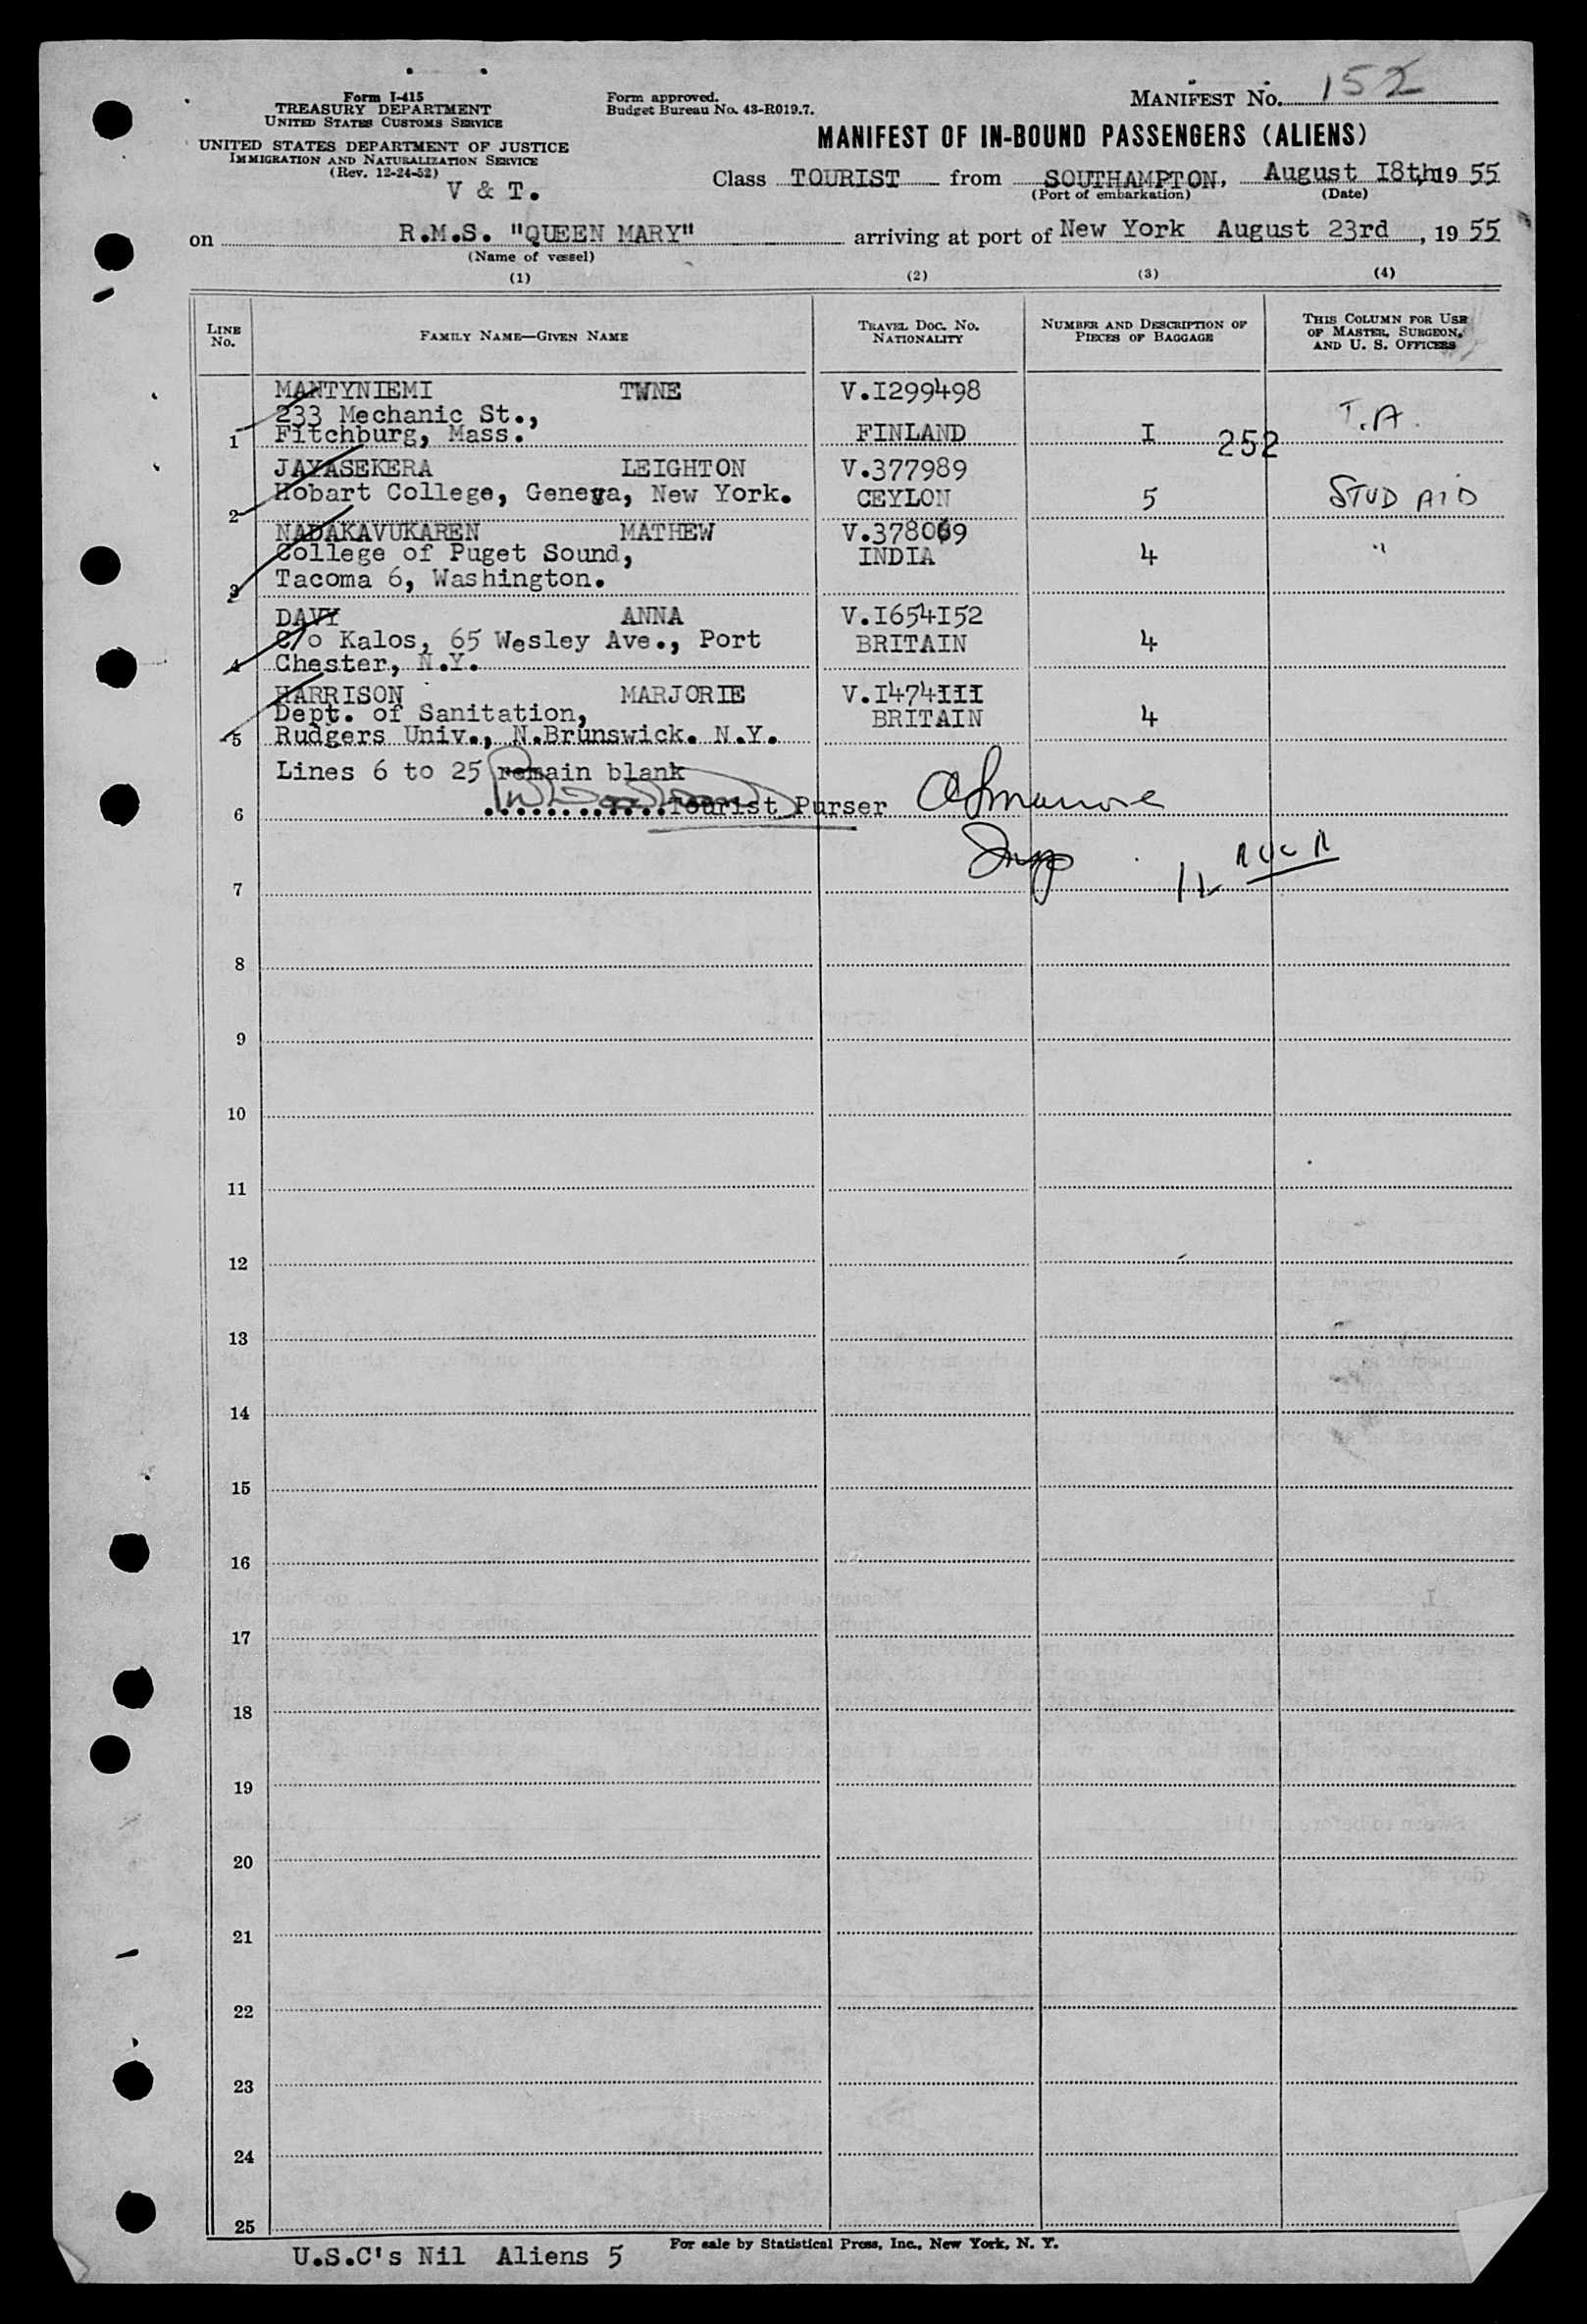 Form I-415
TREASURY DEPARTMENT
UNITED STATES CUSTOMS SERVICE
UNITED STATES DEPARTMENT OF JUSTICE
IMMIGRATION AND NATURALIZATION SERVICE
(Rev. 12-24-52)
V & T.
Form approved.
Budget Bureau No. 43-R019.7.
MANIFEST NO. 152
MANIFEST OF IN-BOUND PASSENGERS (ALIENS)
Class TOURIST from SOUTHAMPTON, August I8th, 19 55
(Port of embarkation) (Date)
on R.M.S. "QUEEN MARY" arriving at port of New York August 23rd, 19 55
(Name of vessel)
(1) (2) (3) (4)
LINE NO. FAMILY NAME—GIVEN NAME TRAVEL DOC. NO. NATIONALITY NUMBER AND DESCRIPTION OF PIECES OF BAGGAGE THIS COLUMN FOR USE OF MASTER, SURGEON, AND U. S. OFFICERS
MANTYNIEMI TWNE V.I299498
233 Mechanic St., T.A.
1 Fitchburg, Mass. FINLAND I 252
JAYASEKERA LEIGHTON V.377989
Hobart College, Geneva, New York. CEYLON 5 STUD AID
2
NADAKAVUKAREN MATHEW V.378069
College of Puget Sound, INDIA 4 "
3 Tacoma 6, Washington.
DAVY ANNA V.I654I52
C/o Kalos, 65 Wesley Ave., Port BRITAIN 4
4 Chester, N.Y.
HARRISON MARJORIE V.I474III
Dept. of Sanitation, BRITAIN 4
5 Rudgers Univ., N.Brunswick. N.Y.
Lines 6 to 25 remain blank
6 ............Tourist Purser
7
8
9
10
11
12
13
14
15
16
17
18
19
20
21
22
23
24
25
For sale by Statistical Press, Inc., New York, N. Y.
U.S.C's Nil Aliens 5